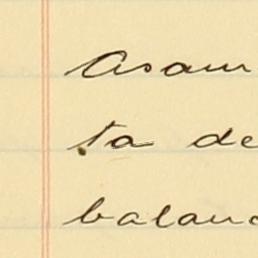 asam
ta de
balanc